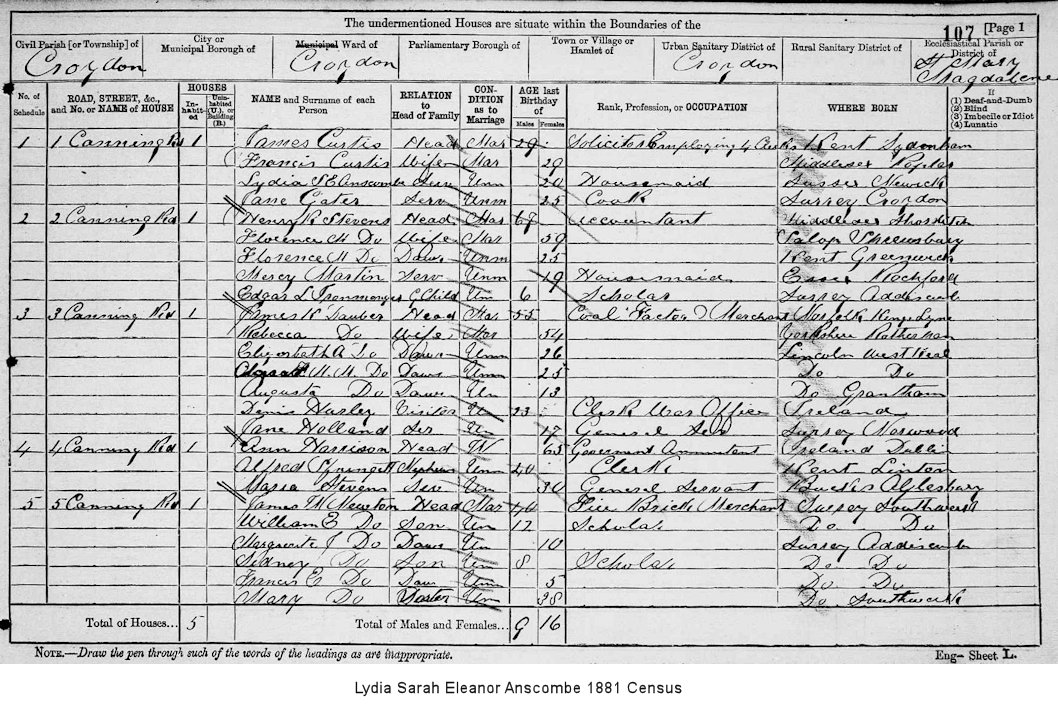 The undermentioned Houses are situate within the Boundaries of the
107 [Page 1
Civil Parish [or Township] of
Croydon
City or Municipal Borough of
Municipal Ward of
Croydon
Parliamentary Borough of
Town or Village or Hamlet of
Urban Sanitary District of
Croydon
Rural Sanitary District of
Ecclesiastical Parish or District of
St Mary Magdalene
No. of Schedule
ROAD, STREET, &c., and No. or NAME of HOUSE
HOUSES
In-habit-ed
Unin-habited (U.), or Building (B.)
NAME and Surname of each Person
RELATION to Head of Family
CON-DITION as to Marriage
AGE last Birthday of
Males
Females
Rank, Profession, or OCCUPATION
WHERE BORN
If
(1) Deaf-and-Dumb
(2) Blind
(3) Imbecile or Idiot
(4) Lunatic
1 1 Canning Rd 1 James Curtis Head Mar 29 Solicitor Employing 4 Clerks Kent Sydenham
Francis Curtis Wife Mar 29 Middlesex Poplar
Lydia S E Anscombe Serv Unm 20 Housemaid Sussex Newick
Jane Gater Serv Unm 25 Cook Surrey Croydon
2 2 Canning Rd 1 Henry R Stevens Head Mar 67 Accountant Middlesex Shoreditch
Florence M Do Wife Mar 59 Salop Shrewsbury
Florence M Do Daur Unm 25 Kent Greenwich
Mercy Martin Serv Unm 19 Housemaid Essex Rochford
Edgar L Ironmonger G Child Un 6 Scholar Surrey Addiscomb
3 3 Canning Rd 1 James K Dauber Head Mar 55 Coal Factor & Merchant Norfolk Kings Lynn
Rebecca Do Wife Mar 54 Yorkshire Rotherham
Elizabeth A Do Daur Unm 26 Lincoln
M. M. Do Daur Unm 25 Do Do
Augusta Do Daur Un 13 Do Grantham
Denis Hurley Visitor Un 23 Clerk War Office Ireland
Jane Holland Ser Un 17 General Serv Surrey Norwood
4 4 Canning Rd 1 Ann Harrison Head W 65 Government Annuitant Ireland Dublin
Alfred Nephew Unm 40 Clerk Kent Linton
Maria Stevens Serv Un 30 General Servant Bucks Aylesbury
5 5 Canning Rd 1 James W Newton Head Mar 44 Fire Brick Merchant Surrey Southwark
William E Do Son Un 12 Scholar Do Do
Marguerite J Do Daur Un 10 Surrey Addiscomb
Sidney Do Son Un 8 Scholar Do Do
Francis E Do Daur Unm 5 Do Do
Mary Do Unm 38 Do Southwark
Total of Houses... 5
Total of Males and Females... 9 16
NOTE.—Draw the pen through such of the words of the headings as are inappropriate.
Eng– Sheet L.
Lydia Sarah Eleanor Anscombe 1881 Census